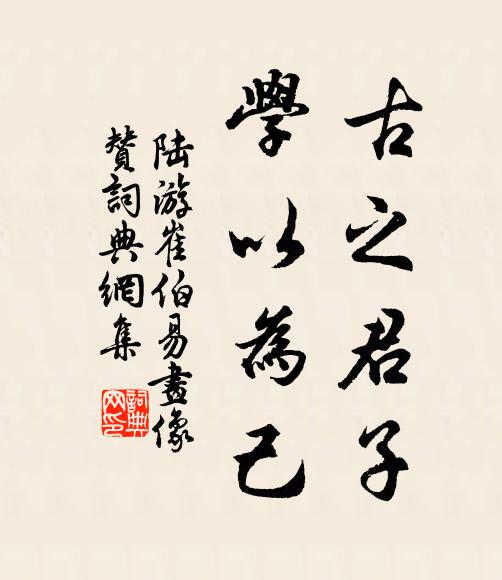 古之君子
學以為己
陸游崔伯易畫像
贊詞典網集
詞典
网印